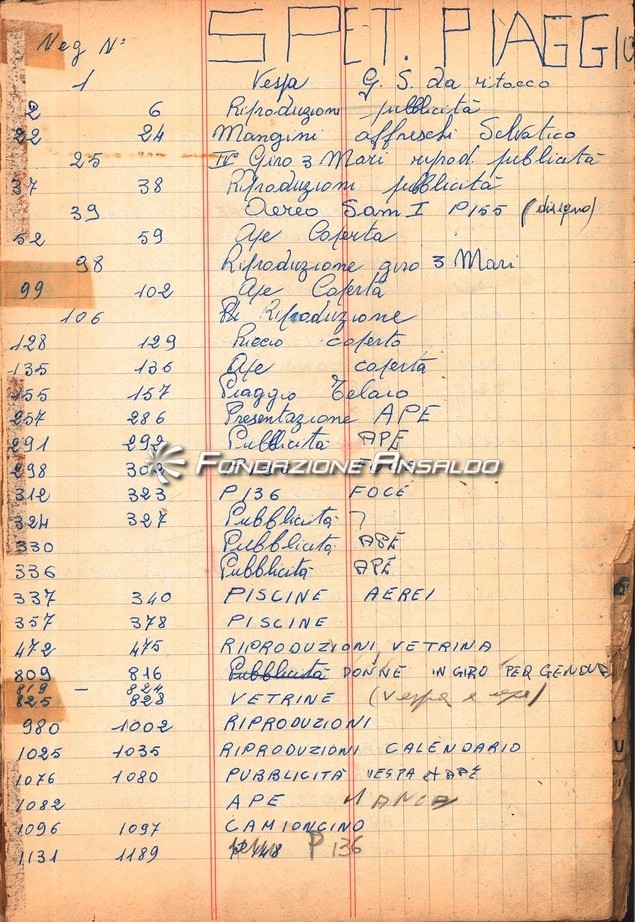 SPET. PIAGGIO
Neg Nº
1 Vespa G. S. da ritocco
2 6 Riproduzioni pubblicità
22 24 Mangini affreschi Selvatico
25 IVº Giro 3 Mari riprod. pubblicità
37 38 Riproduzioni pubblicità
39 Aereo Sam I P155 (disegno)
52 59 Ape Coperta
98 Riproduzione giro 3 Mari
99 102 Ape Coperta
106 Riproduzione
128 129 Riccio coperto
135 136 Ape coperta
155 157 Piaggio Telaio
257 286 Presentazione APE
291 292 Pubblicità APE
298
FONDAZIONE ANSALDO
312 323 P136 FOCE
324 327 Pubblicità
330 Pubblicità APE
336 Pubblicità APE
337 340 PISCINE AEREI
357 378 PISCINE
472 475 RIPRODUZIONI VETRINA
809 816 Pubblicità DONNE IN GIRO PER GENOVA
819 - 824
825 828 VETRINE (Vespa e ape)
980 1002 RIPRODUZIONI
1025 1035 RIPRODUZIONI CALENDARIO
1076 1080 PUBBLICITÀ VESPA APE
1082 APE MANCA
1096 1097 CAMIONCINO
1131 1189 P148 P136